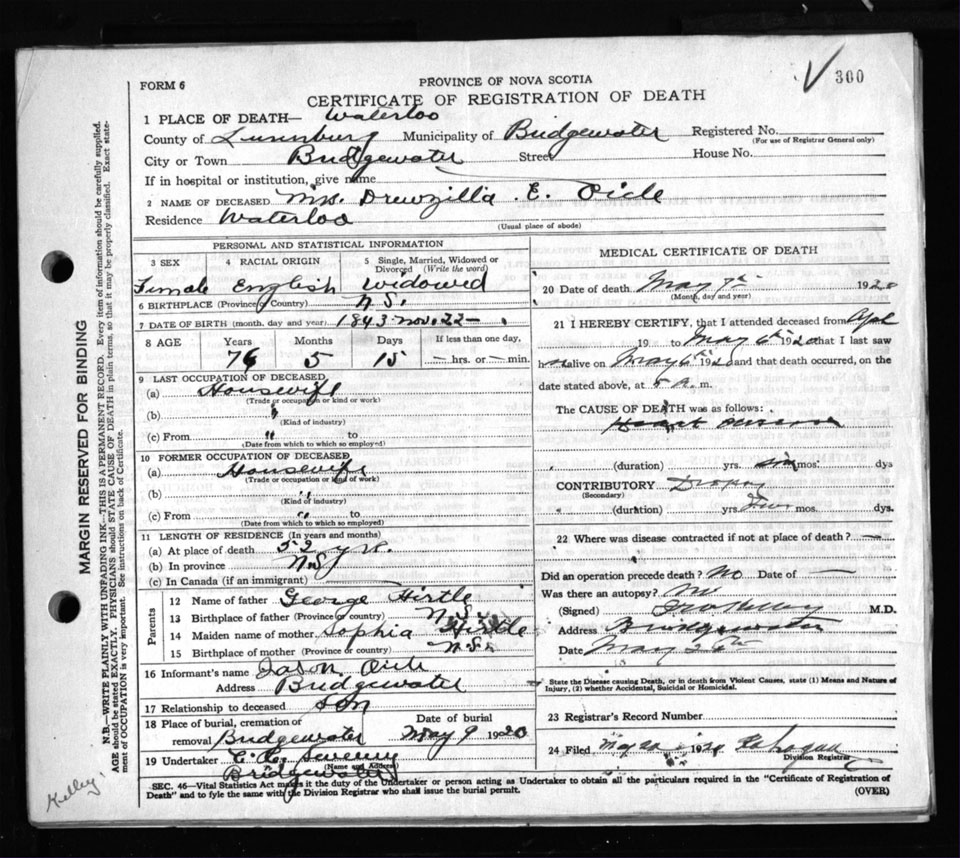 300
FORM 6
PROVINCE OF NOVA SCOTIA
CERTIFICATE OF REGISTRATION OF DEATH
1 PLACE OF DEATH— Waterloo
County of Lunenburg Municipality of Bridgewater Registered No.
(For use of Registrar General only)
City or Town Bridgewater Street House No.
If in hospital or institution, give name
2 NAME OF DECEASED Mrs. Drewzilla E. Oicle
Residence Waterloo
(Usual place of abode)
PERSONAL AND STATISTICAL INFORMATION
3 SEX 4 RACIAL ORIGIN 5 Single, Married, Widowed or Divorced (Write the word)
Female English Widowed
6 BIRTHPLACE (Province or Country) N.S.
7 DATE OF BIRTH (month, day and year) 1843 Nov. 22—
8 AGE Years Months Days If less than one day,
76 5 15 — hrs. or — min.
9 LAST OCCUPATION OF DECEASED
(a) Housewife
(Trade or occupation or kind of work)
(b) "
(Kind of industry)
(c) From " to
(Date from which to which so employed)
10 FORMER OCCUPATION OF DECEASED
(a) Housewife
(Trade or occupation or kind of work)
(b) "
(Kind of industry)
(c) From " to
(Date from which to which so employed)
11 LENGTH OF RESIDENCE (In years and months)
(a) At place of death 52 yr.
(b) In province N.S.
(c) In Canada (if an immigrant)
Parents
12 Name of father George Hirtle
13 Birthplace of father (Province or country) N.S.
14 Maiden name of mother Sophia Hirtle
15 Birthplace of mother (Province or country) N.S.
16 Informant's name Jason Oicle
Address Bridgewater
17 Relationship to deceased Son
18 Place of burial, cremation or removal Bridgewater Date of burial May 9 1920
19 Undertaker
Bridgewater
MEDICAL CERTIFICATE OF DEATH
20 Date of death May 7th 1920
(Month, day and year)
21 I HEREBY CERTIFY, that I attended deceased from Apl
19 to May 6th 1920 that I last saw
h alive on May 6th 192 and that death occurred, on the
date stated above, at 5 a. m.
The CAUSE OF DEATH was as follows:
Heart disease
(duration) yrs. six mos. dys
CONTRIBUTORY Dropsy
(Secondary)
(duration) yrs. mos. dys.
22 Where was disease contracted if not at place of death? —
Did an operation precede death? No Date of —
Was there an autopsy? No
(Signed) M.D.
Address Bridgewater
Date May
State the Disease causing Death, or in death from Violent Causes, state (1) Means and Nature of Injury, (2) whether Accidental, Suicidal or Homicidal.
23 Registrar's Record Number
24 Filed 19
Division Registrar
SEC. 46—Vital Statistics Act makes it the duty of the Undertaker or person acting as Undertaker to obtain all the particulars required in the "Certificate of Registration of
Death" and to fyle the same with the Division Registrar who shall issue the burial permit.
(OVER)
MARGIN RESERVED FOR BINDING
N.B.—WRITE PLAINLY WITH UNFADING INK—THIS IS A PERMANENT RECORD. Every item of information should be carefully supplied.
AGE should be stated EXACTLY. PHYSICIANS should STATE CAUSE OF DEATH in plain terms, so that it may be properly classified. Exact statement of OCCUPATION is very important. See instructions on back of Certificate.
Kelley